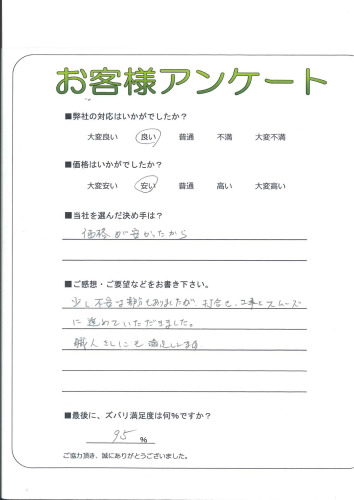 お客様アンケート
■弊社の対応はいかがでしたか？
大変良い 良い 普通 不満 大変不満
■価格はいかがでしたか？
大変安い 安い 普通 高い 大変高い
■当社を選んだ決め手は？
価格が安かったから
■ご感想・ご要望などをお書き下さい。
少し不安な部分もありましたが、打合せ、工事とスムーズ
に進めていただきました。
職人さんにも満足してます
■最後に、ズバリ満足度は何％ですか？
95 ％
ご協力頂き、誠にありがとうございました。